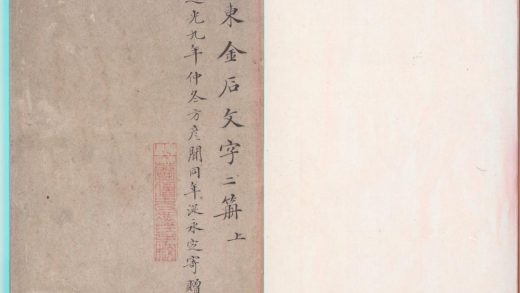 東金石文字二冊 上
光九年仲冬方彥聞同年從永定寄贈